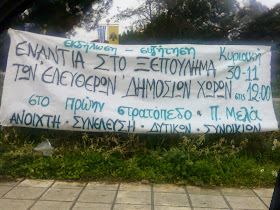 εκδήλωση - συζήτηση Κυριακή
ΕΝΑΝΤΙΑ ΣΤΟ ΞΕΠΟΥΛΗΜΑ 30-11
ΤΩΝ ΕΛΕΥΘΕΡΩΝ ΔΗΜΟΣΙΩΝ ΧΩΡΩΝ στις 19:00
στο πρώην στρατόπεδο Π. Μελά
ΑΝΟΙΧΤΗ ΣΥΝΕΛΕΥΣΗ ΔΥΤΙΚΩΝ ΣΥΝΟΙΚΙΩΝ